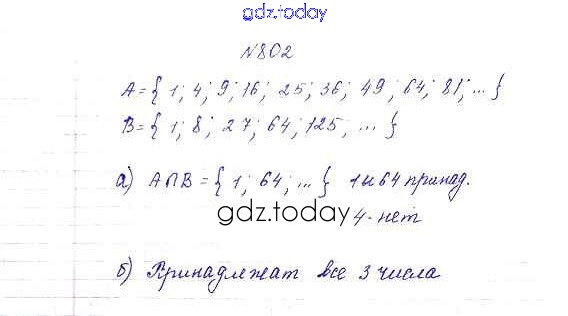 gdz.today
№802
A={1; 4; 9; 16; 25; 36; 49; 64; 81; ...}
B={1; 8; 27; 64; 125, ...}
а) A∩B={1; 64; ...} 1 и 64 принад.
gdz.today
4-нет
б) Принадлежат все 3 числа